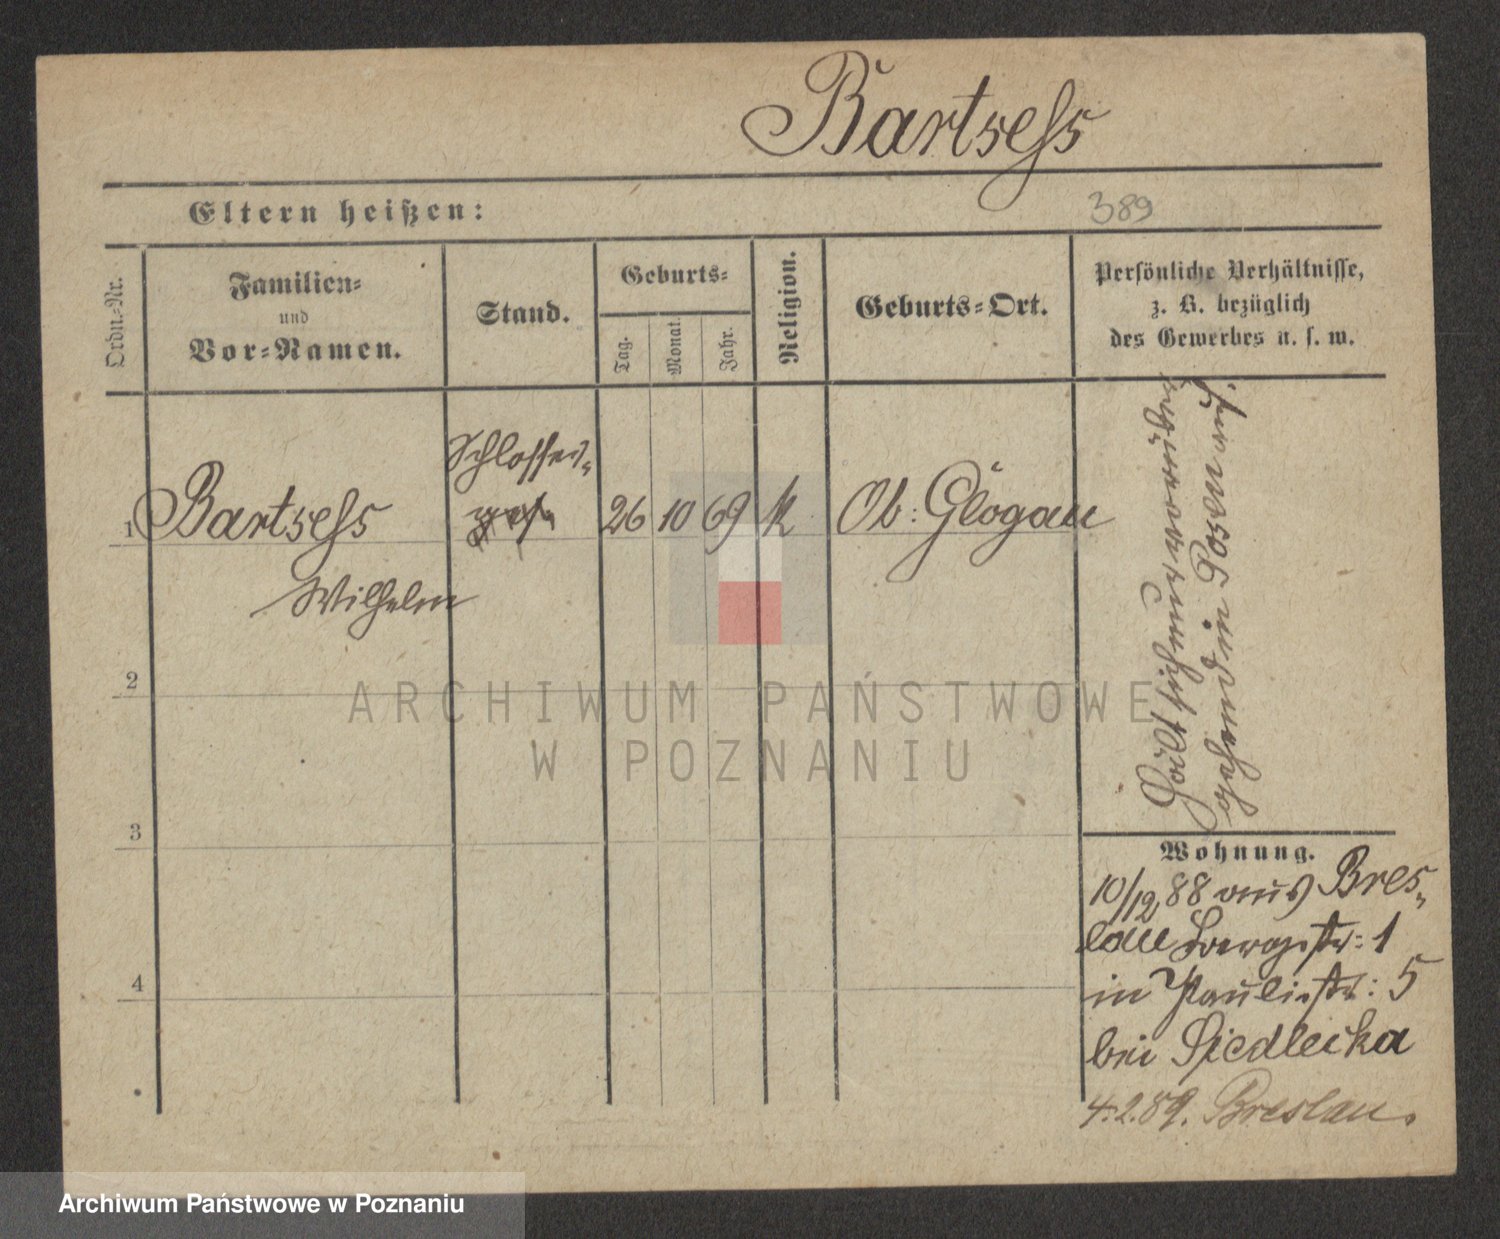 Bartsch
Eltern heißen:
389
Ordn.-Nr.
Familien-
und
Vor-Namen.
Stand.
Geburts-
Tag.
Monat.
Jahr.
Religion.
Geburts-Ort.
Persönliche Verhältnisse,
z. B. bezüglich
des Gewerbes u. s. w.
Schlosser-
1 Bartsch ges. 26 10 69 k Ob: Glogau
Wilhelm
2
3
4
Hält sich nur vorüber
gehend in Posen auf.
Wohnung.
10/12 88 aus Bres-
lau str: 1
in Paulistr: 5
bei Siedlecka
4.2.89. Breslau.
ARCHIWUM PAŃSTWOWE
W POZNANIU
Archiwum Państwowe w Poznaniu